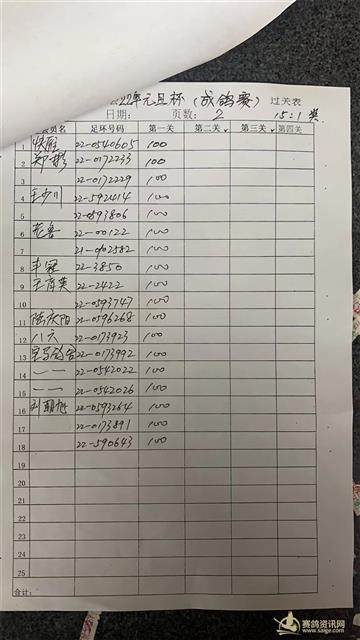 22年元旦杯(成鸽赛)过关表
日期: 页数: 2 15:1 奖
员名 足环号码 第一关 第二关 第三关 第四关
1 22-0540605 100
2 郑彬 22-0172233 100
3 22-0172229 100
4 王少川 22-592414 100
5 22-0593806 100
6 22-00122 100
7 21-002582 100
8 丰冠 22-3850 100
9 王育英 22-2422 100
10 22-0593747 100
11 陆庆阳 22-0596268 100
12 八六 22-0173923 100
13 宝马鸽舍 22-0173992 100
14 一一 22-0542022 100
15 一一 22-0542026 100
16 刘朝旭 22-0593264 100
17 22-0173891 100
18 22-590643 100
19
20
21
22
23
24
25
合计:
赛鸽资讯网
www.saige.com